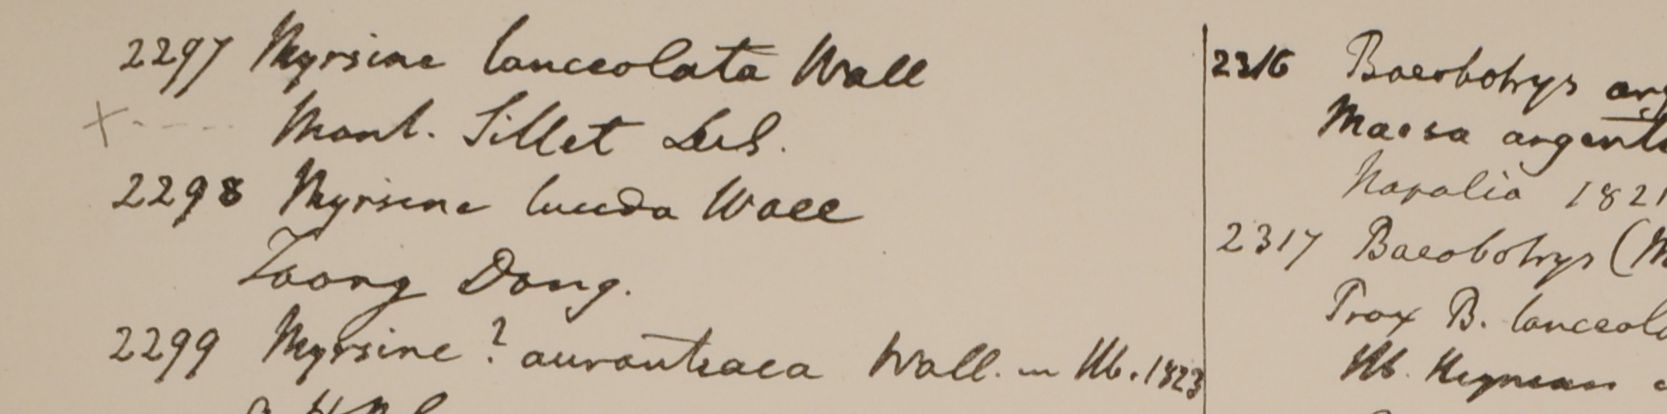 2297 Myrsine lanceolata Wall
Mont. Sillet
2298 Myrsine lucida Wall
Taong Dong.
2299 Myrsine ? aurantiaca Wall. in Hb. 1823
2316 Baeobotrys arg
Maesa argente
Napalia 1821
2317 Baeobotrys (M
Prox B. lanceola
Hb. Heynean